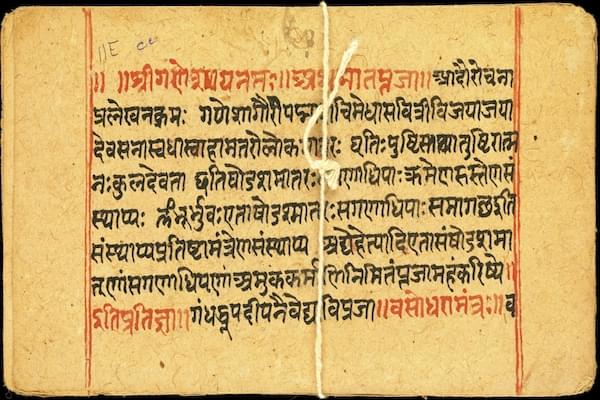 ॥E ८८
॥ ॥श्रीगणेशायनमः॥ अथ मातृपूजा॥ आदौरोचना
प्रलेखनक्रमः गणेशागौरीपद्माशचीमेधासवित्रीविजयाजया
देवसेनास्वधास्वाहामातरोलोकमातरः धृतिःपुष्टिस्तथातुष्टिरात्म
नःकुलदेवता इतिषोडशमातरः सगणाधिपाः क्रमेणहस्तेणसं
स्थाप्यः ॐभूर्भुवःएताषोडशमातरःसगणाधिपाः समागछतइति
संस्थाप्यप्रतिष्ठामंत्रेणसंस्थाप्य अद्येहेत्यादिएतासंषोडशमा
तॄणंसगणाधिपाणं अमुककर्माणिनिमितंपूजामहंकरिष्ये॥
इतिप्रतिज्ञा॥ गंधधूपदीपनैवेद्य विपूजा॥ वसोधरामंत्रः॥ व